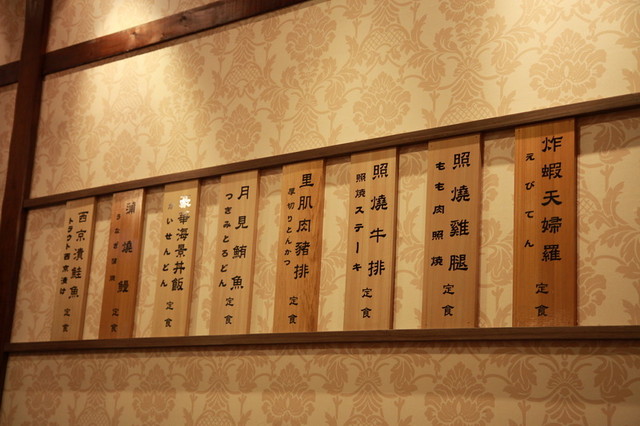 炸蝦天婦羅
えびてん
定食
照燒雞腿
もも肉照燒
定食
照燒牛排
照燒ステーキ
定食
里肌肉豬排
厚切りとんかつ
定食
月見鮪魚
つきみとろどん
定食
華海景丼飯
いせんどん
定食
蒲燒鰻
うなぎ
定食
西京漬鮭魚
トラウト西京漬け
定食